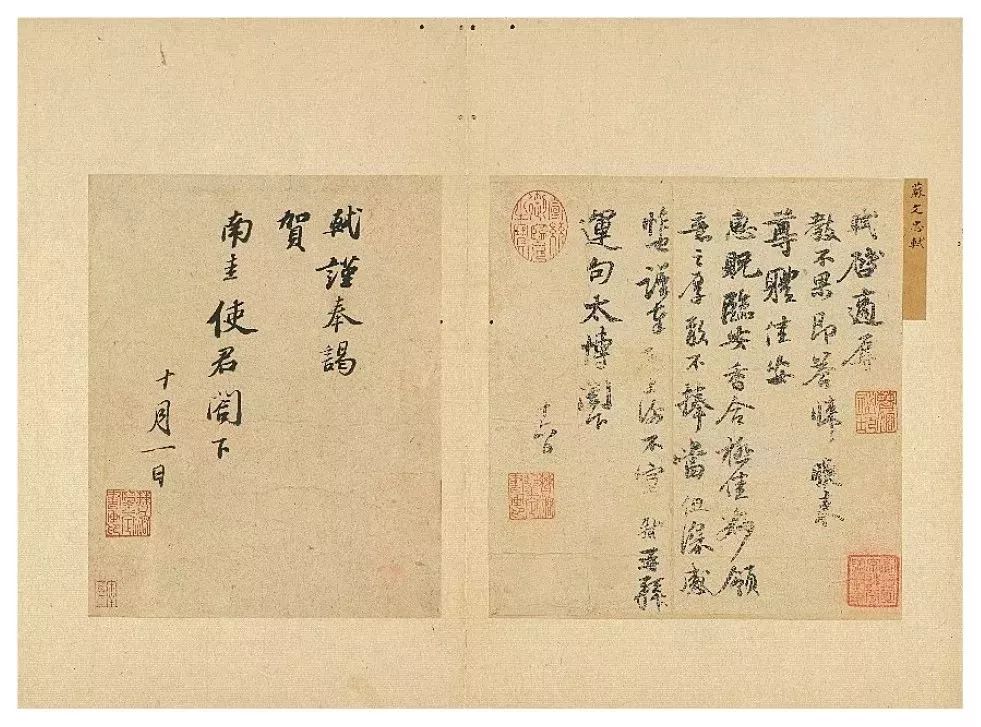 蘇文忠軾
軾啓適辱
教不果即答悚
尊體佳安
惠貺臨安香合極佳妙領
意之厚敢不捧當但深感
怍也謹奉 不宣 軾再拜
運句太博閣下
十六日
軾謹奉謁
賀
南圭使君閤下
十月一日